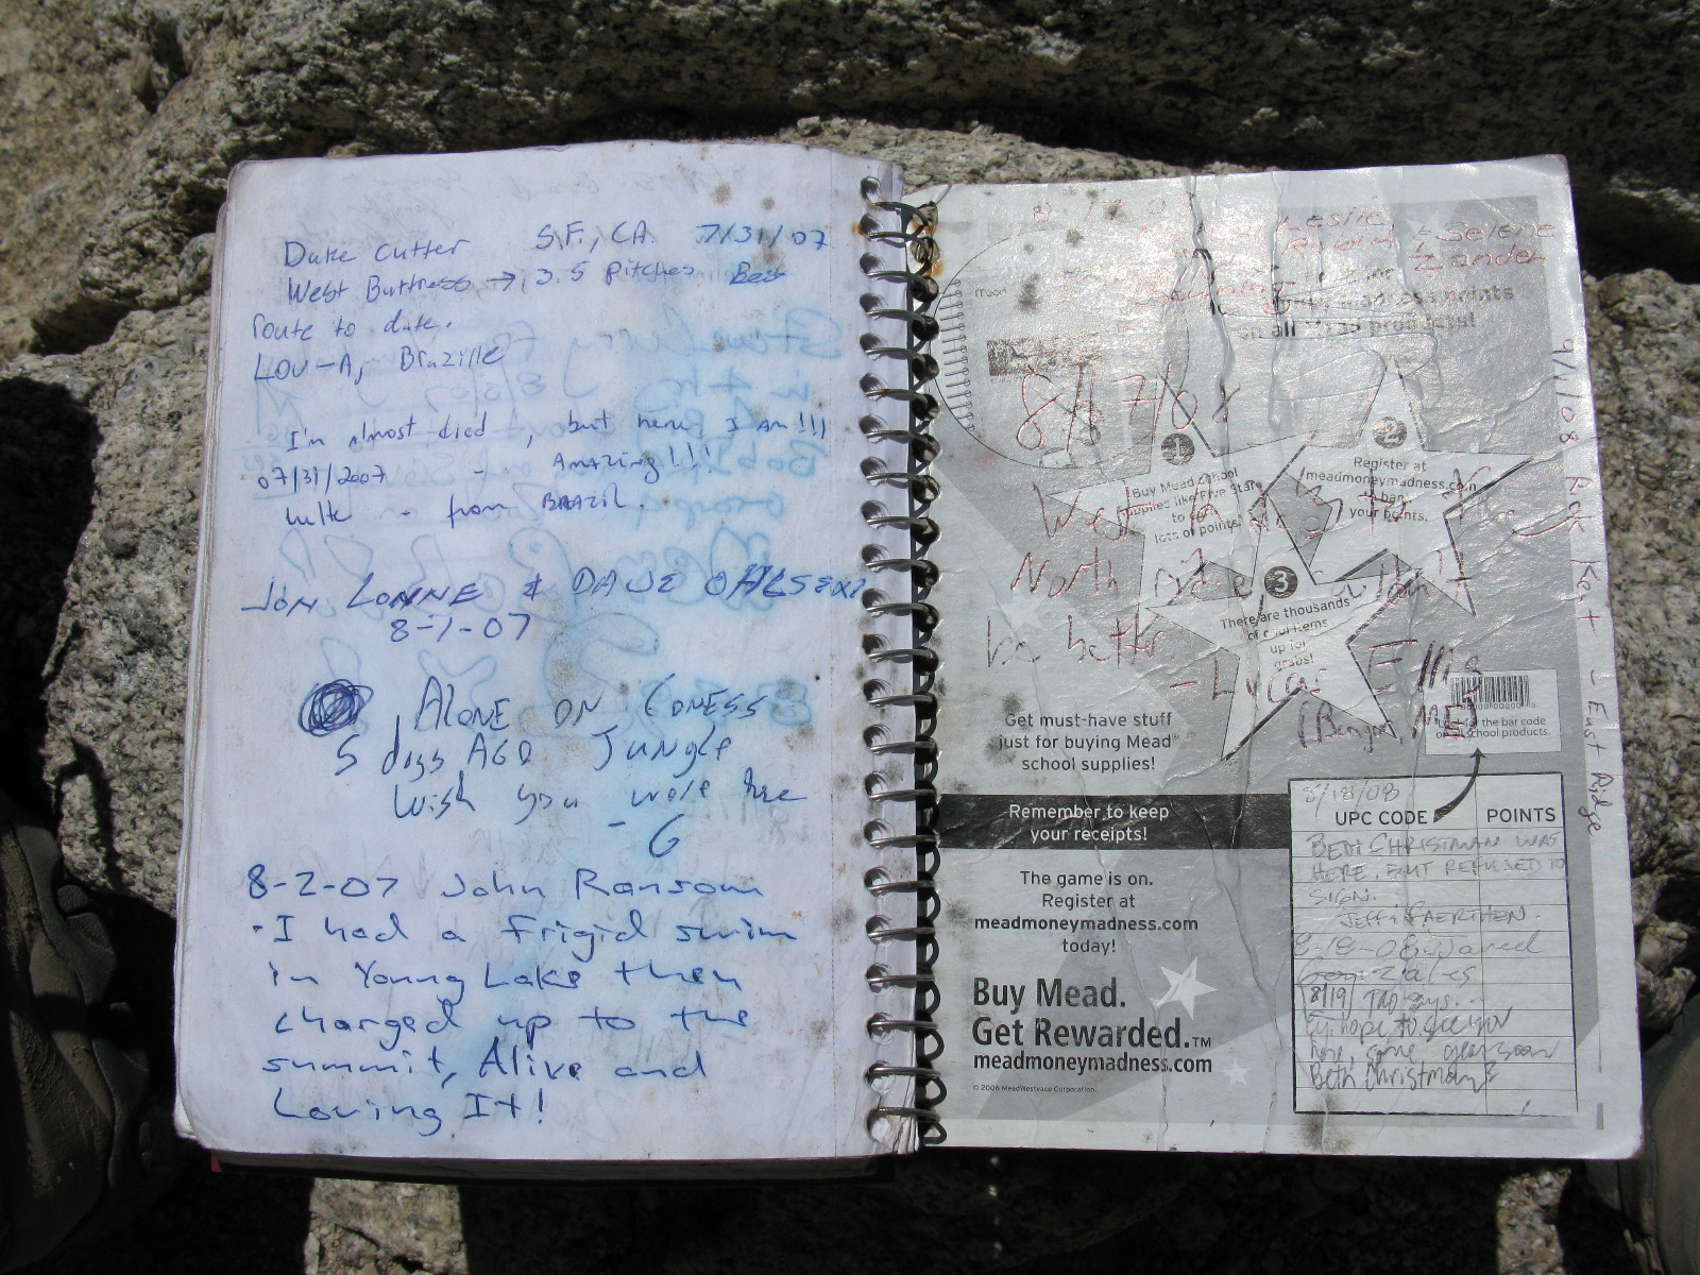 Duke Cutter S.F., CA. 7/31/07
West Buttress → 3.5 Pitches Best
route to date.
LOU-A, Brazille
I'm almost died, but here I am!!!
07/31/2007 - Amazing!!!!
from BRAZIL.
JON LONNE & DAVE OHLSEN
8-1-07
ALONE ON CONESS
5 days AGO Jungle
Wish you were here
- G
8-2-07 John Ransom
- I had a frigid swim
in Young Lake then
charged up to the
summit, Alive and
Loving It!
Leslie
& Selene
Zander
points
on all Mead products!
8/17/08
1
Buy Mead school
supplies like Five Star
to
lots of points.
2
Register at
meadmoneymadness.com
to bank
your points.
West
North ridge
be better
- Lucas Ellis
(Bangor, ME)
3
There are thousands
of cool items
up for
grabs!
Get must-have stuff
just for buying Mead
school supplies!
for the bar code
school products.
Remember to keep
your receipts!
The game is on.
Register at
meadmoneymadness.com
today!
Buy Mead.
Get Rewarded.™
meadmoneymadness.com
© 2006 MeadWestvaco Corporation.
8/18/08
UPC CODE POINTS
BETH CHRISTMAN WAS
HERE, BUT REFUSED TO
SIGN.
8-18-08 Jared
Gonzales
8/19
hope to see you
here, some year soon
Beth Christman
9/1/08 Kent - East Ridge